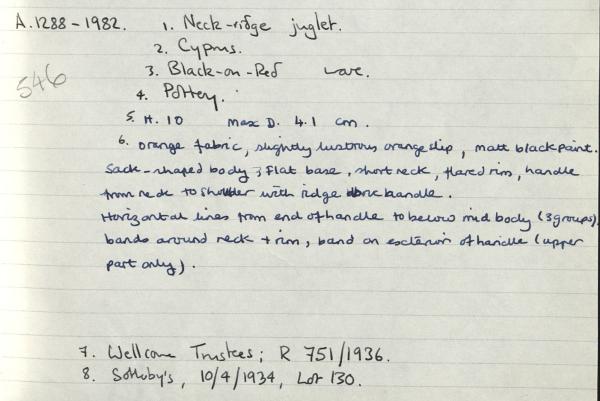 A.1288-1982. 1. Neck-ridge juglet.
2. Cyprus.
546
3. Black-on-Red ware.
4. Pottery.
5. H. 10 max D. 4.1 cm.
6. orange fabric, slightly lustrous orange slip, matt black paint.
Sack-shaped body, flat base, short neck, flared rim, handle
from neck to shoulder with ridge handle.
Horizontal lines from end of handle to below mid body (3 groups).
bands around neck + rim, band on exterior of handle (upper
part only).
7. Wellcome Trustees; R 751/1936.
8. Sotheby's, 10/4/1934, Lot 130.